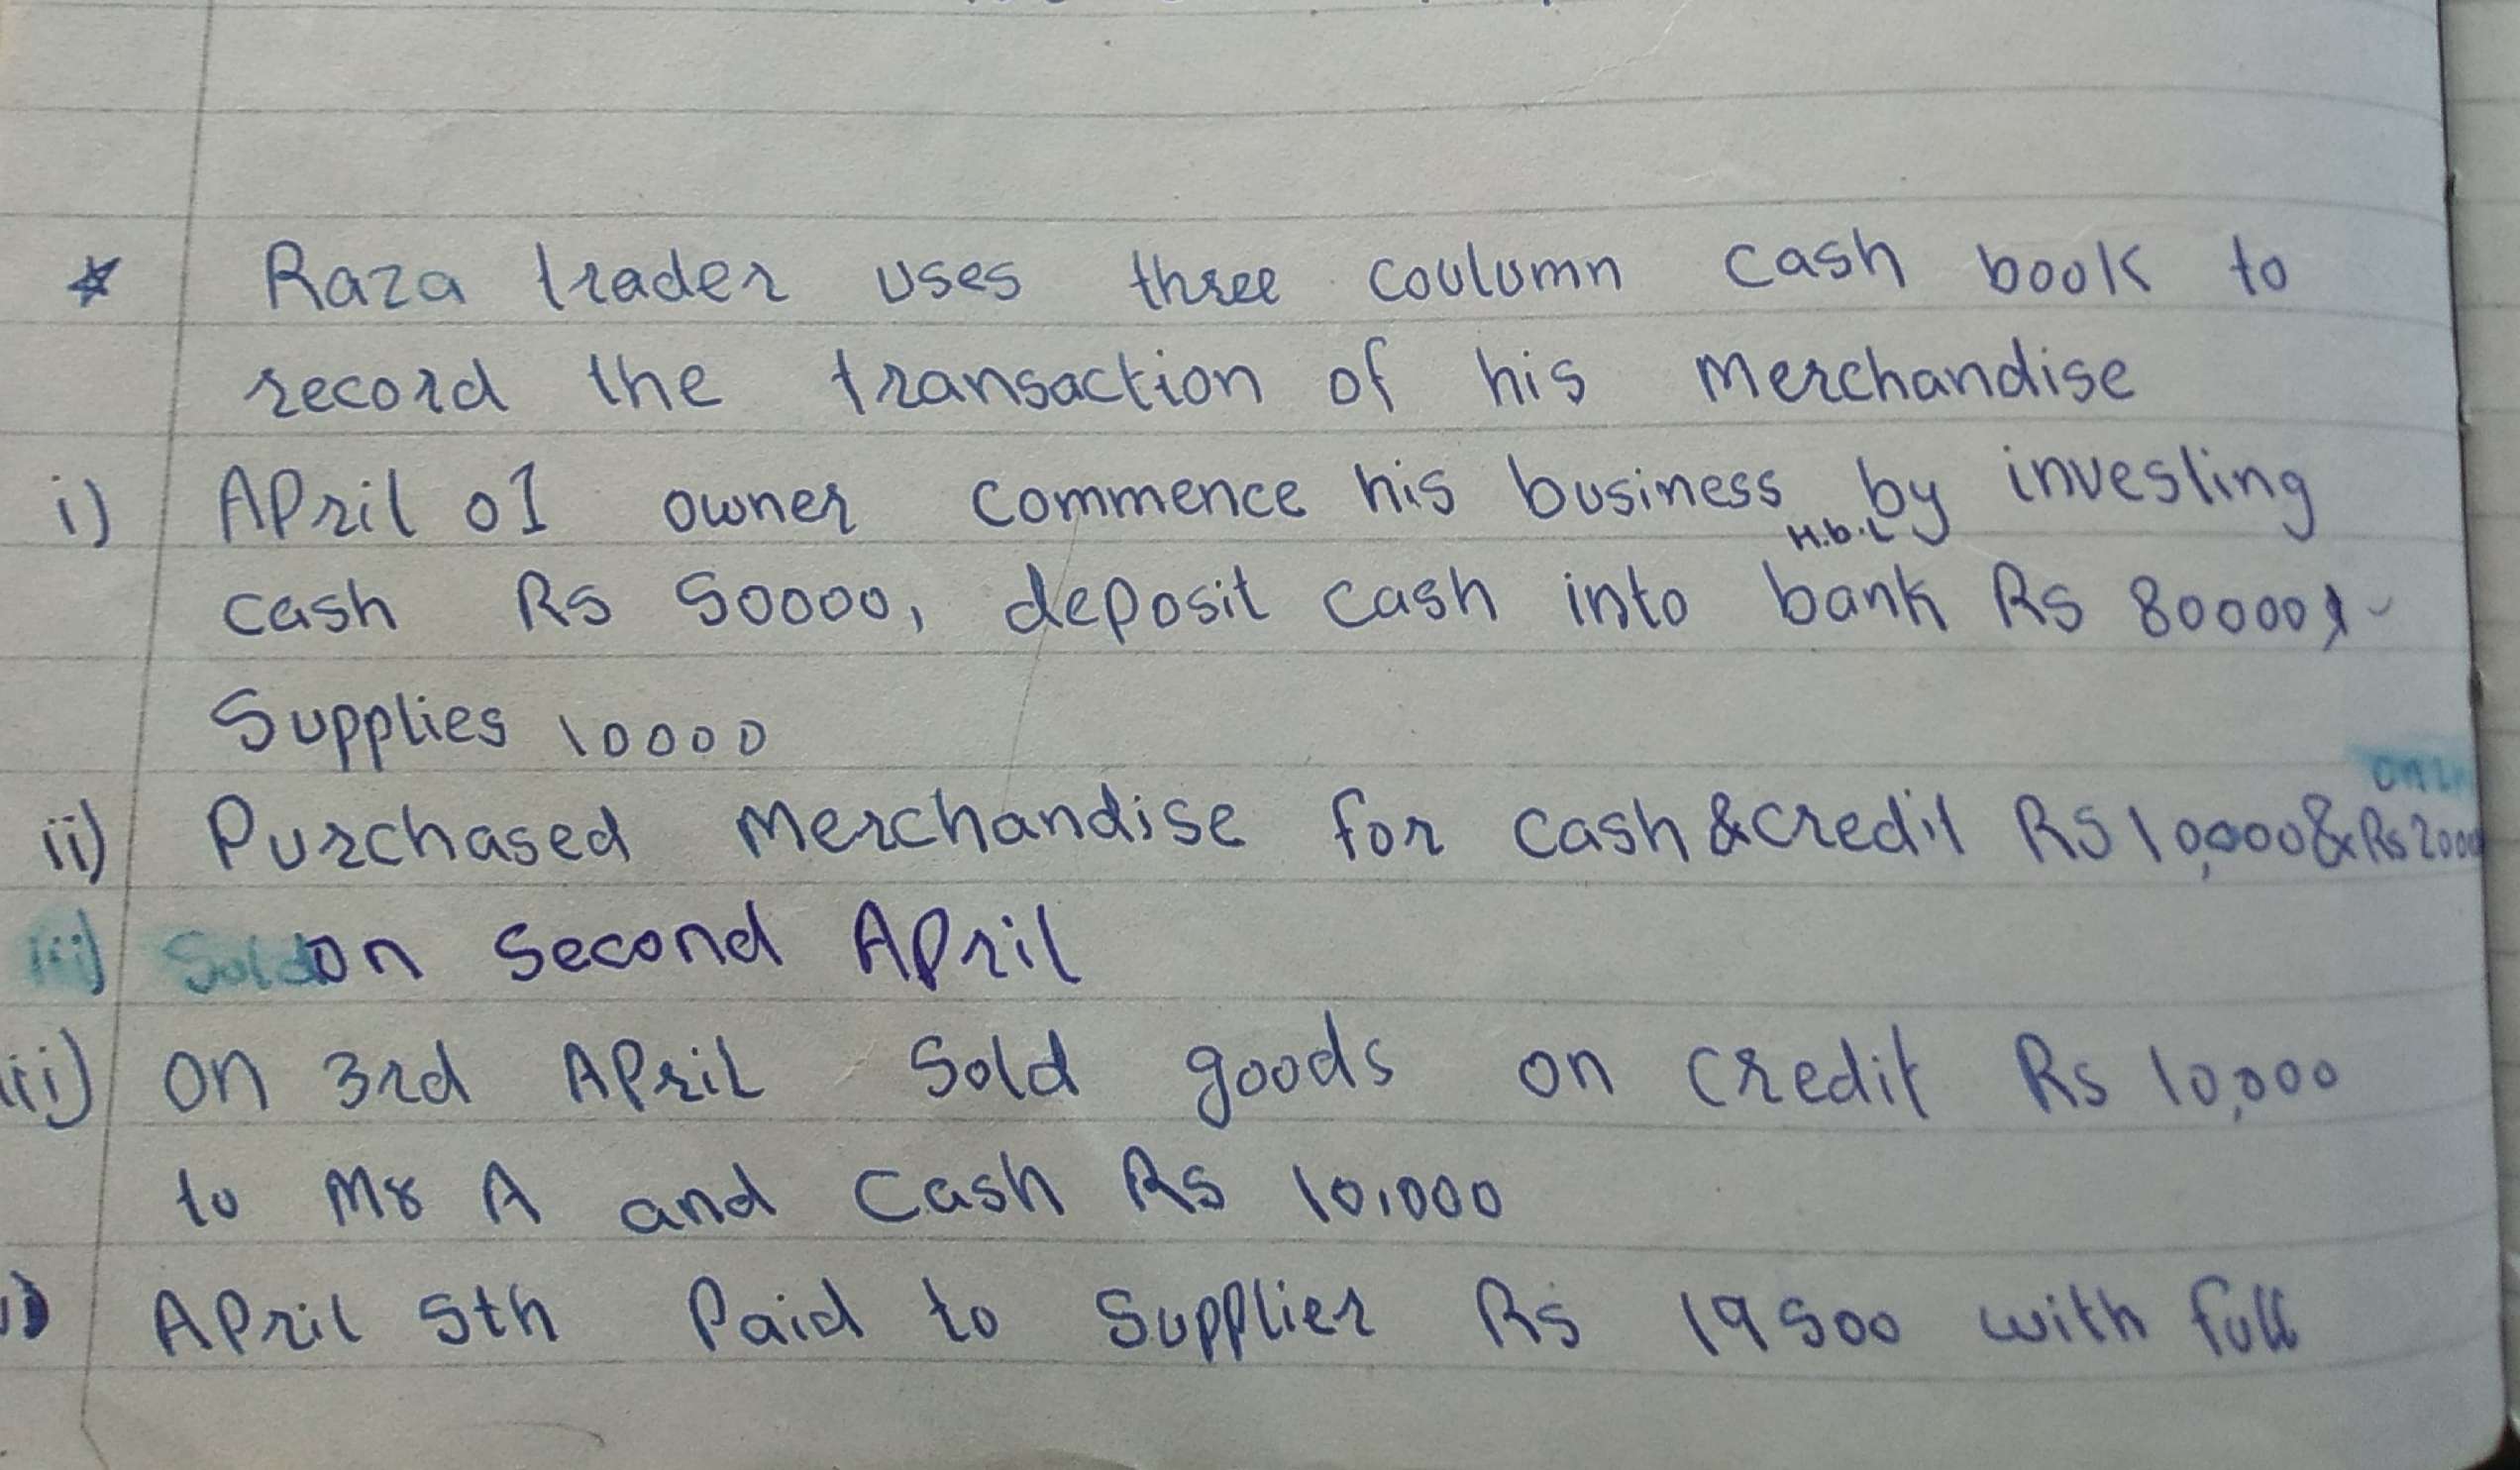 * Raza trader uses three coulumn cash book to
record the transaction of his Merchandise
i) April 01 owner commence his business by investing
H.b.L
cash Rs 50000, deposit cash into bank Rs 80000,
Supplies 10000
ii) Purchased Merchandise for cash & credit Rs 10,000 & Rs 2000
iii) Sold on second April
iii) on 3rd April Sold goods on credit Rs 10,000
to Mr A and Cash Rs 10,000
April 5th Paid to Supplier Rs 19500 with full